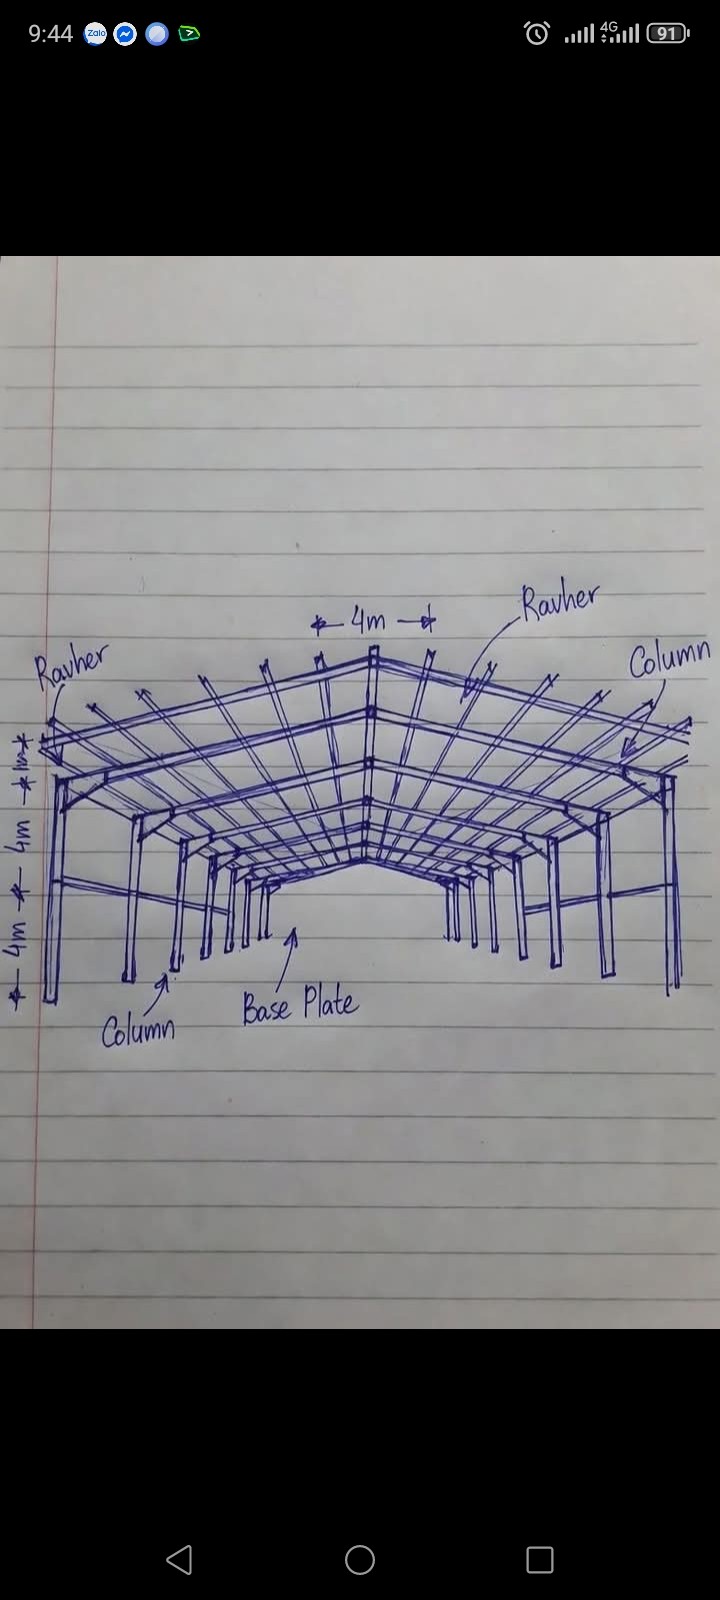 9:44
Zalo
4G
91
4m
Ravher
Ravher
Column
1m
4m
4m
Column
Base Plate